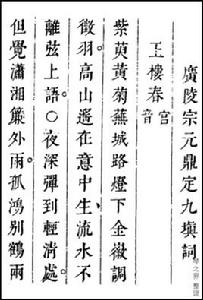 廣陵宗元鼎定九塡詞
玉樓春 宮音
紫萸黃菊蕪城路燈下金徽調
徵羽高山遥在意中生流水不
離弦上語○夜深彈到輕清處
但覺瀟湘簾外雨孤鴻別鶴兩
整理